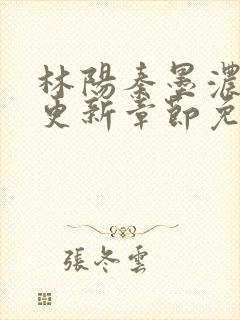 林陽秦墨濃
更新章節免
張冬雲